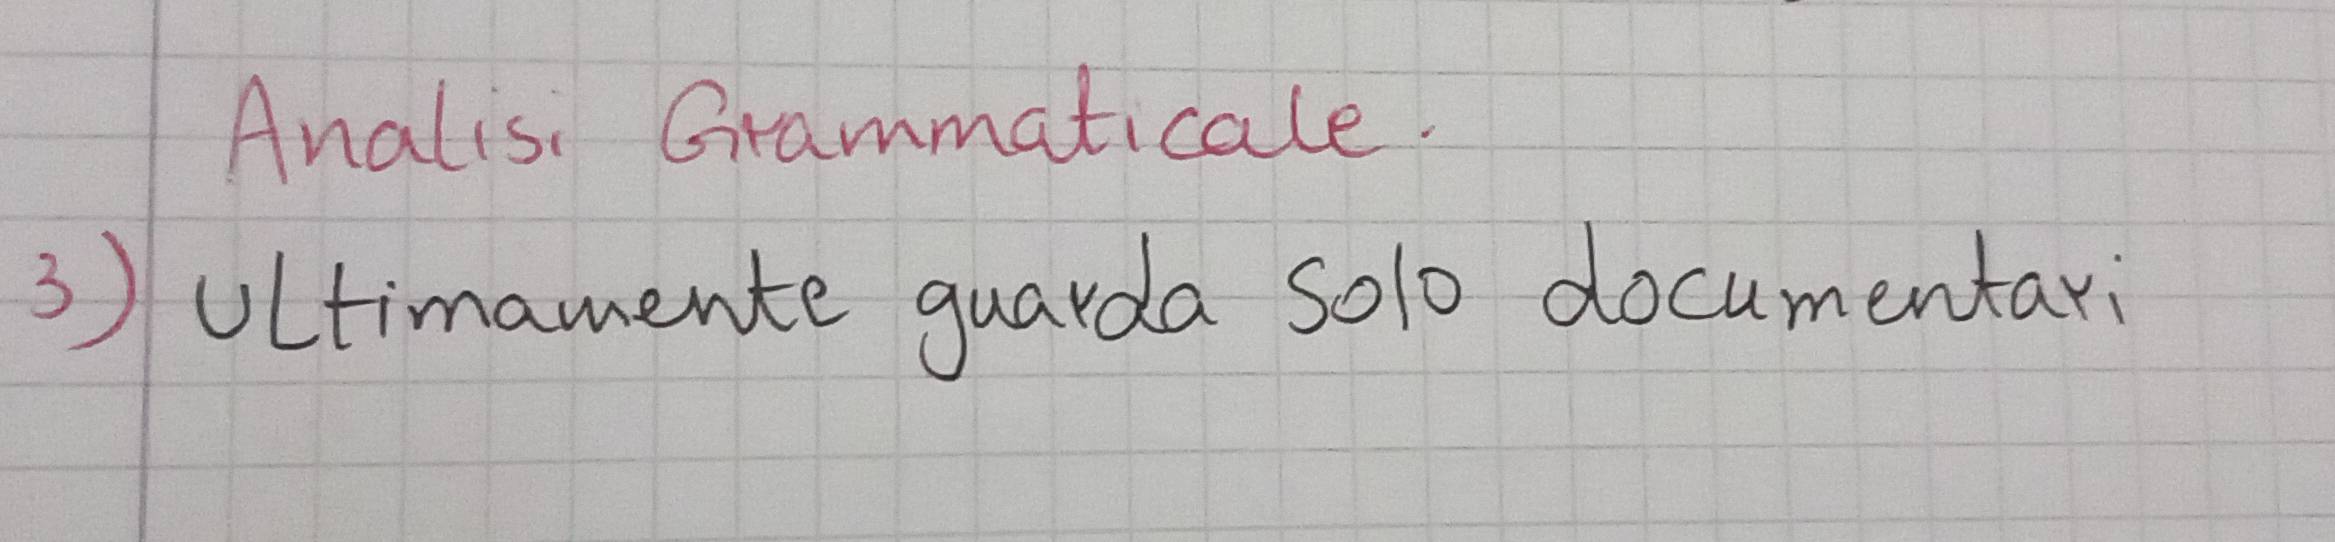 Analisi Grammaticale.
3) Ultimamente guarda solo documentari